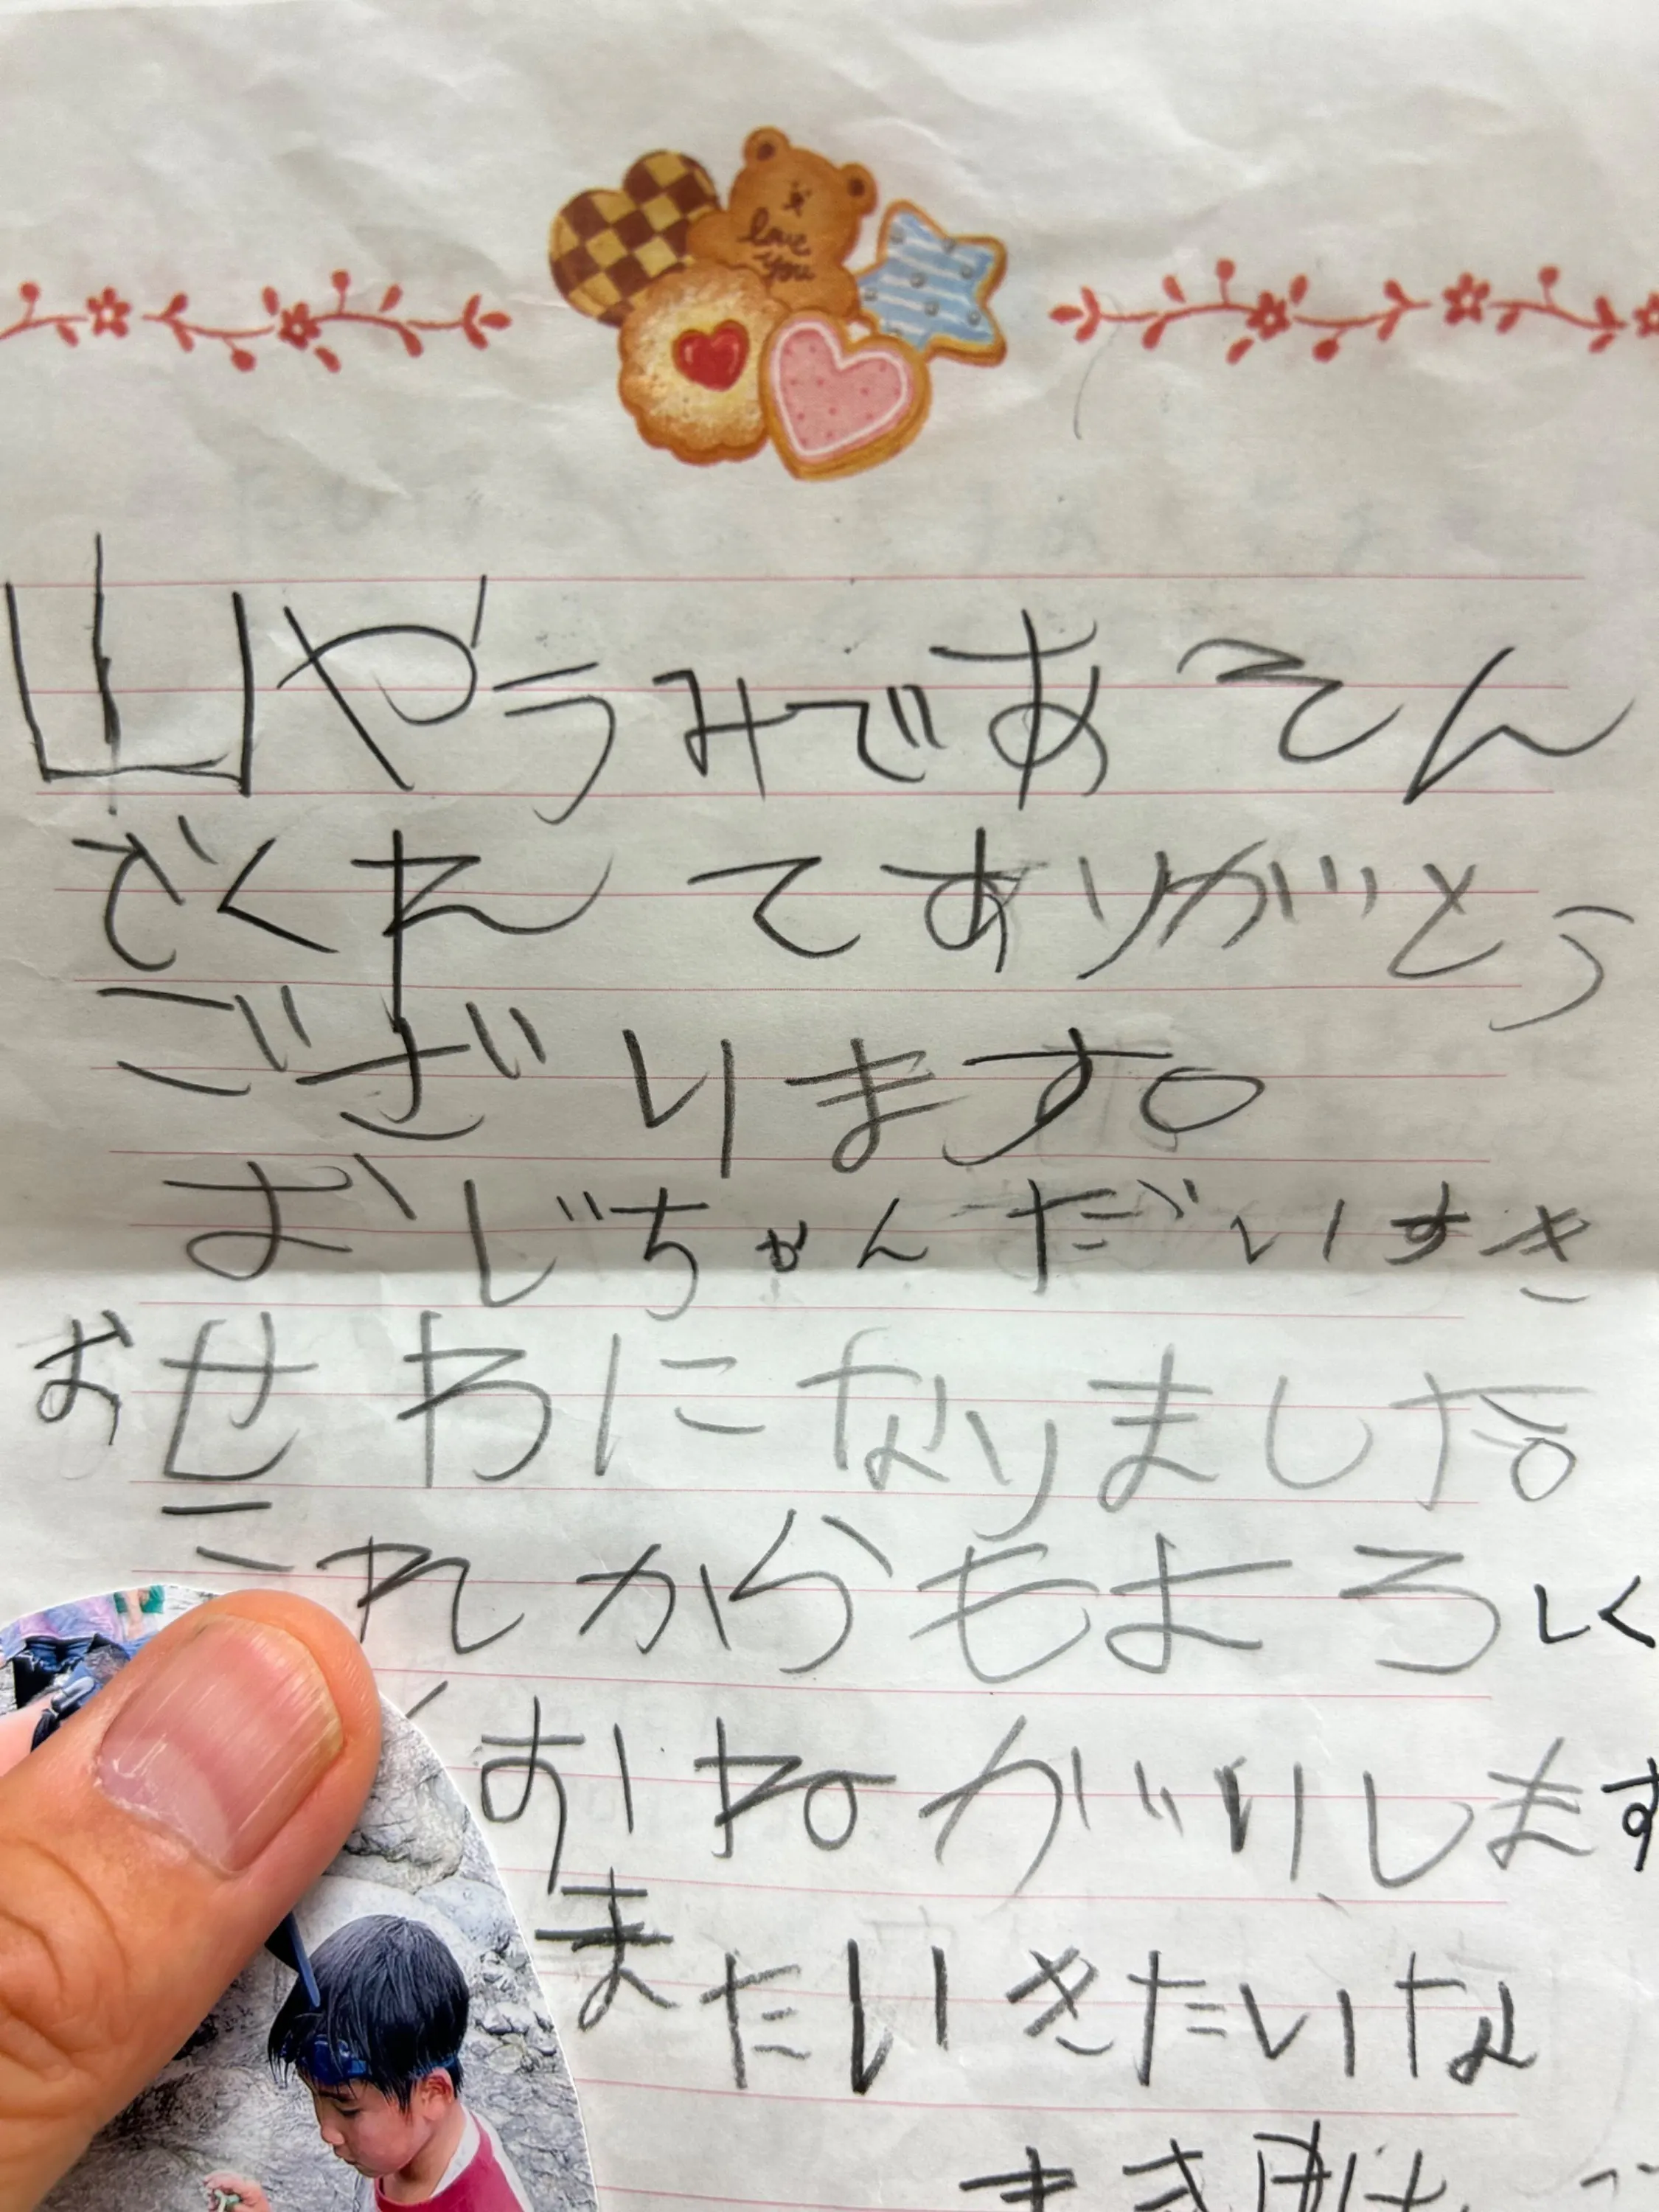 love
you
山やうみであそん
でくれてありがとう
ございます。
おじちゃんだいすき
おせわになりました。
これからもよろしく
おねがいします
またいきたいな